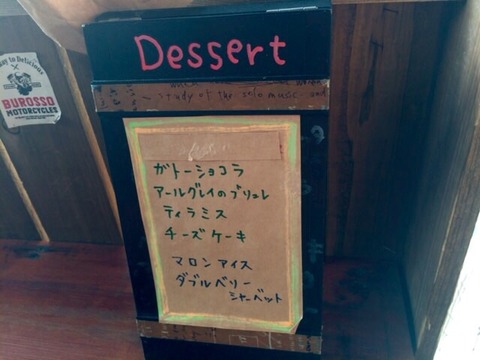 Dessert
study of the solo music and
ガトーショコラ
アールグレイのブリュレ
ティラミス
チーズケーキ
マロンアイス
ダブルベリー
シャーベット
way to Delicious
BUROSSO
MOTORCYCLES